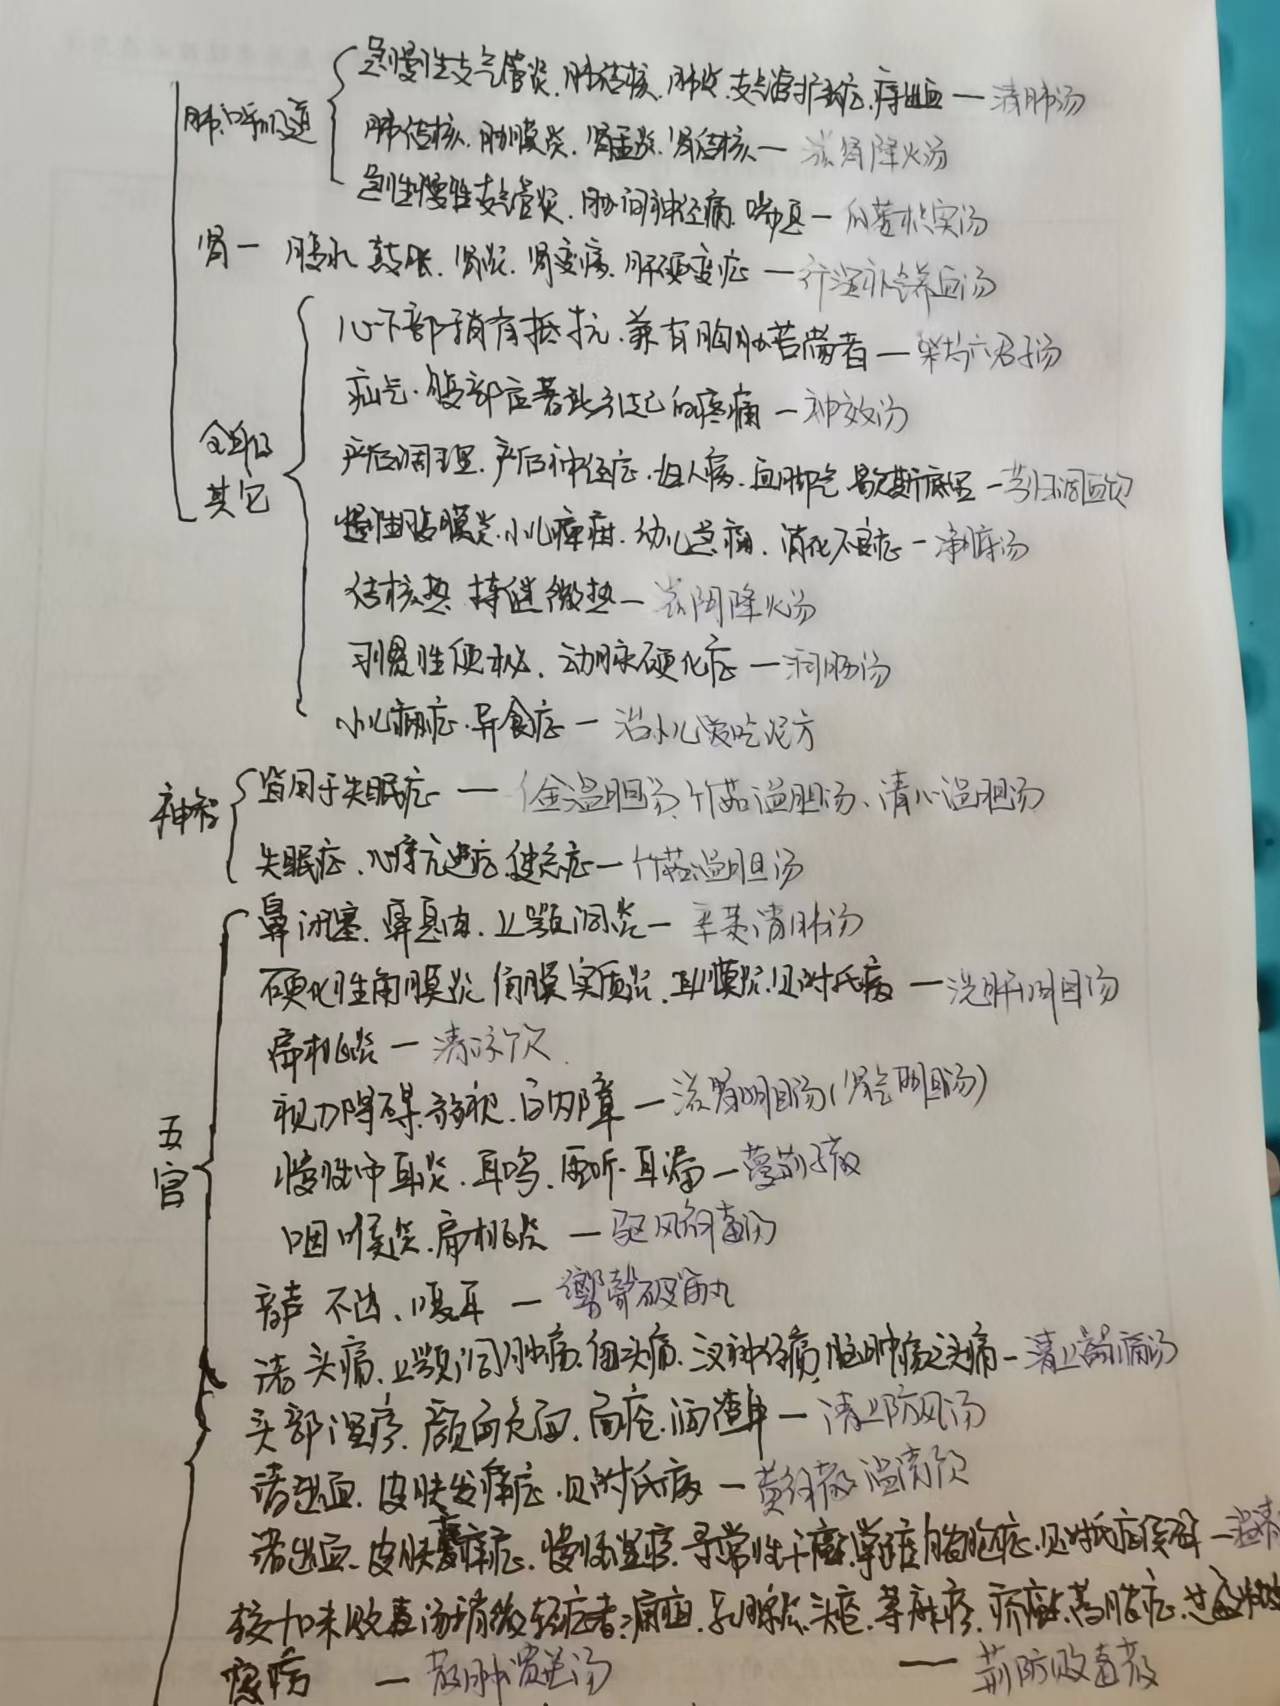 肺、呼吸道
急慢性支气管炎、肺结核、肺炎、支气管扩张症、痔出血 — 清肺汤
肺结核、肋膜炎、肾盂炎、肾结核 — 滋阴降火汤
急性慢性支气管炎、肋间神经痛、喘息 — 瓜蒌枳实汤
肾 — 腹水 鼓胀、肾炎、肾变病、肝硬变症 — 行湿补气养血汤
全身及
其它
心下部稍有抵抗、兼有胸胁苦满者 — 柴芍六君子汤
疝气、腹部 引起的疼痛 — 神效汤
产后调理、产后神经症、妇人病、血脚气 歇斯底里 — 芎归调血饮
慢性腹膜炎、小儿疳、幼儿 、消化不良症 — 净府汤
结核热 持续微热 — 滋阴降火汤
习惯性便秘、动脉硬化症 — 润肠汤
小儿癖症、异食症 — 治小儿爱吃泥方
神经
皆用于失眠症 — 温胆汤、竹茹温胆汤、清心温胆汤
失眠症、心悸亢进症、健忘症 — 竹茹温胆汤
五
官
鼻闭塞、鼻息肉、上颚洞炎 — 辛荑清肺汤
硬化性角膜炎 角膜实质炎、 、贝时氏病 — 洗肝明目汤
扁桃炎 — 清凉饮
视力障碍、弱视、白内障 — 滋肾明目汤(肾气明目汤)
慢性中耳炎、耳鸣、重听、耳漏 — 蔓荆子散
咽喉炎、扁桃炎 — 驱风解毒汤
音声不出、嗄 — 响声破笛丸
诸头痛、上颚洞肿痛、 头痛、 神经痛、脑肿疡之头痛 — 清上蠲痛汤
头部湿疹、颜面 、面疮、酒渣鼻 — 清上防风汤
诸出血、皮肤发痒症、贝时氏病 — 黄 散 温清饮
诸出血、皮肤瘙痒症、慢性湿疹、寻常性干癣、荨 症、 、贝时氏症侯群 — 温清
较加味败毒汤稍微轻症者: 、乳腺炎、头疮、荨麻疹、疥癣、 症、
疾病 — 散肿溃坚汤 — 荆防败毒散